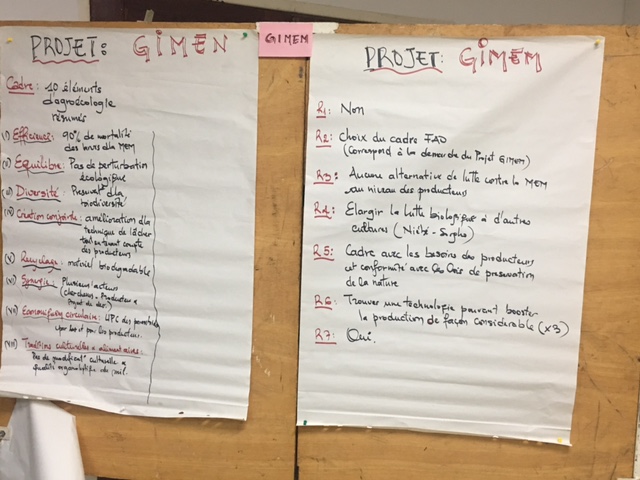 PROJET: GIMEN
Cadre: 10 éléments
d'agroécologie
résumés
(I) Efficience: 90% de mortalité
des larves de la MEM
(II) Equilibre: Pas de perturbation
écologique
(III) Diversité: Préserve la
biodiversité
(IV) Création conjointe: amélioration de la
technique de lâcher
tout en tenant compte
des producteurs
(V) Recyclage: matériel biodégradable
(VI) Synergie: Plusieurs acteurs
(chercheurs, Producteurs &
Projet de dev.)
(VII) Economie circulaire: UPC des
par les producteurs
(VIII) Traditions culturelles & alimentaires:
Pas de culturelle &
qualité organoleptique du mil.
GIMEM
PROJET: GIMEM
R1: Non
R2: Choix du cadre FAO
(Correspond à la demande du Projet GIMEM)
R3: Aucune alternative de lutte contre la MEM
au niveau des producteurs
R4: Elargir la lutte biologique à d'autres
cultures (Niébé - Sorgho)
R5: Cadre avec les besoins des producteurs
et conformité avec les lois de préservation
de la nature
R6: Trouver une technologie pouvant booster
la production de façon considérable (x3)
R7: Oui.